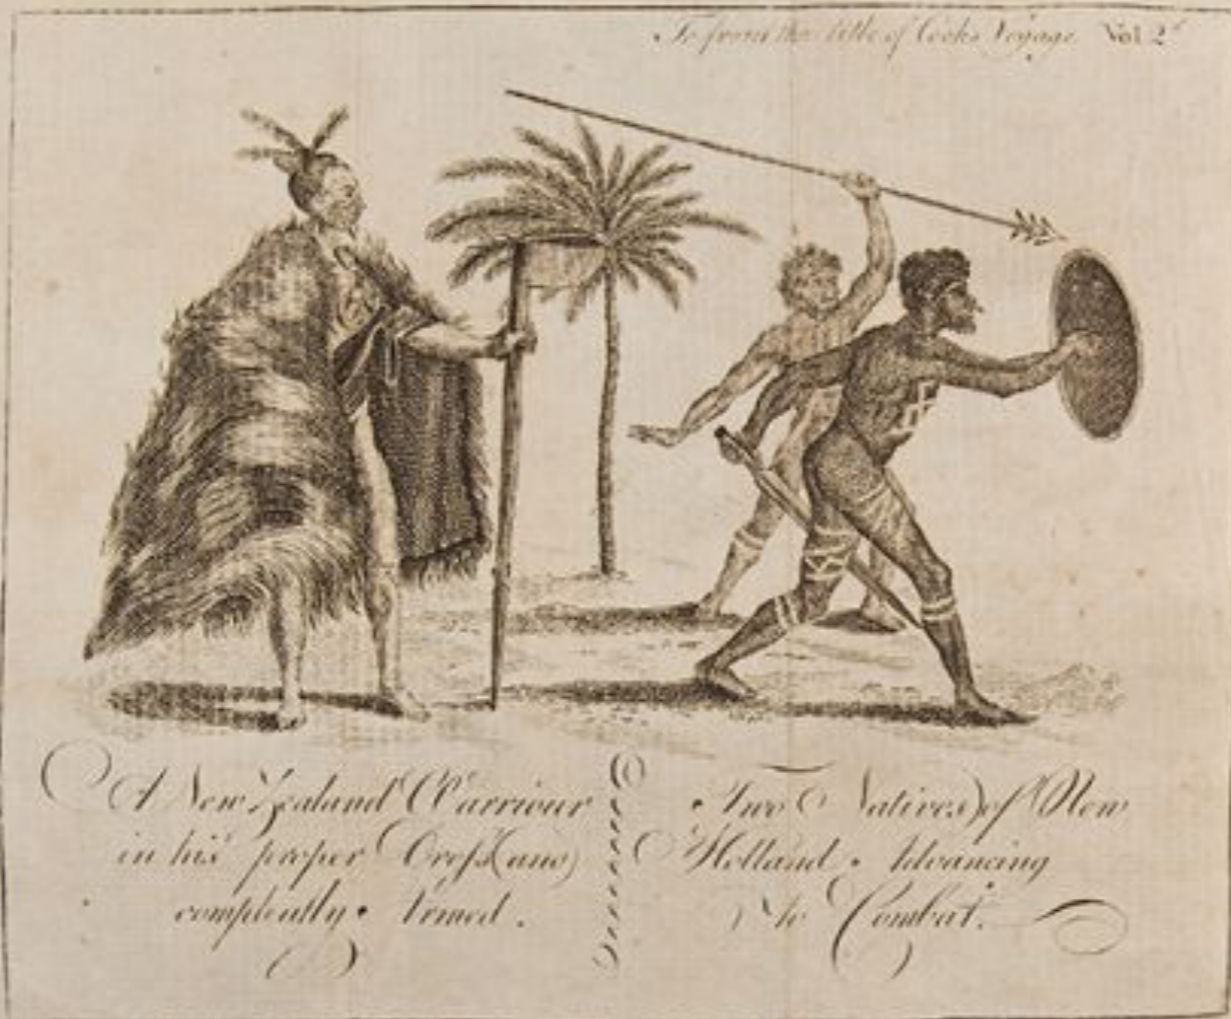 To front the title of Cooks Voyage Vol 2d
A New Zealand Warriour
in his proper Dress, and
compleatly Armed.
Two Natives of New
Holland Advancing
to Combat.